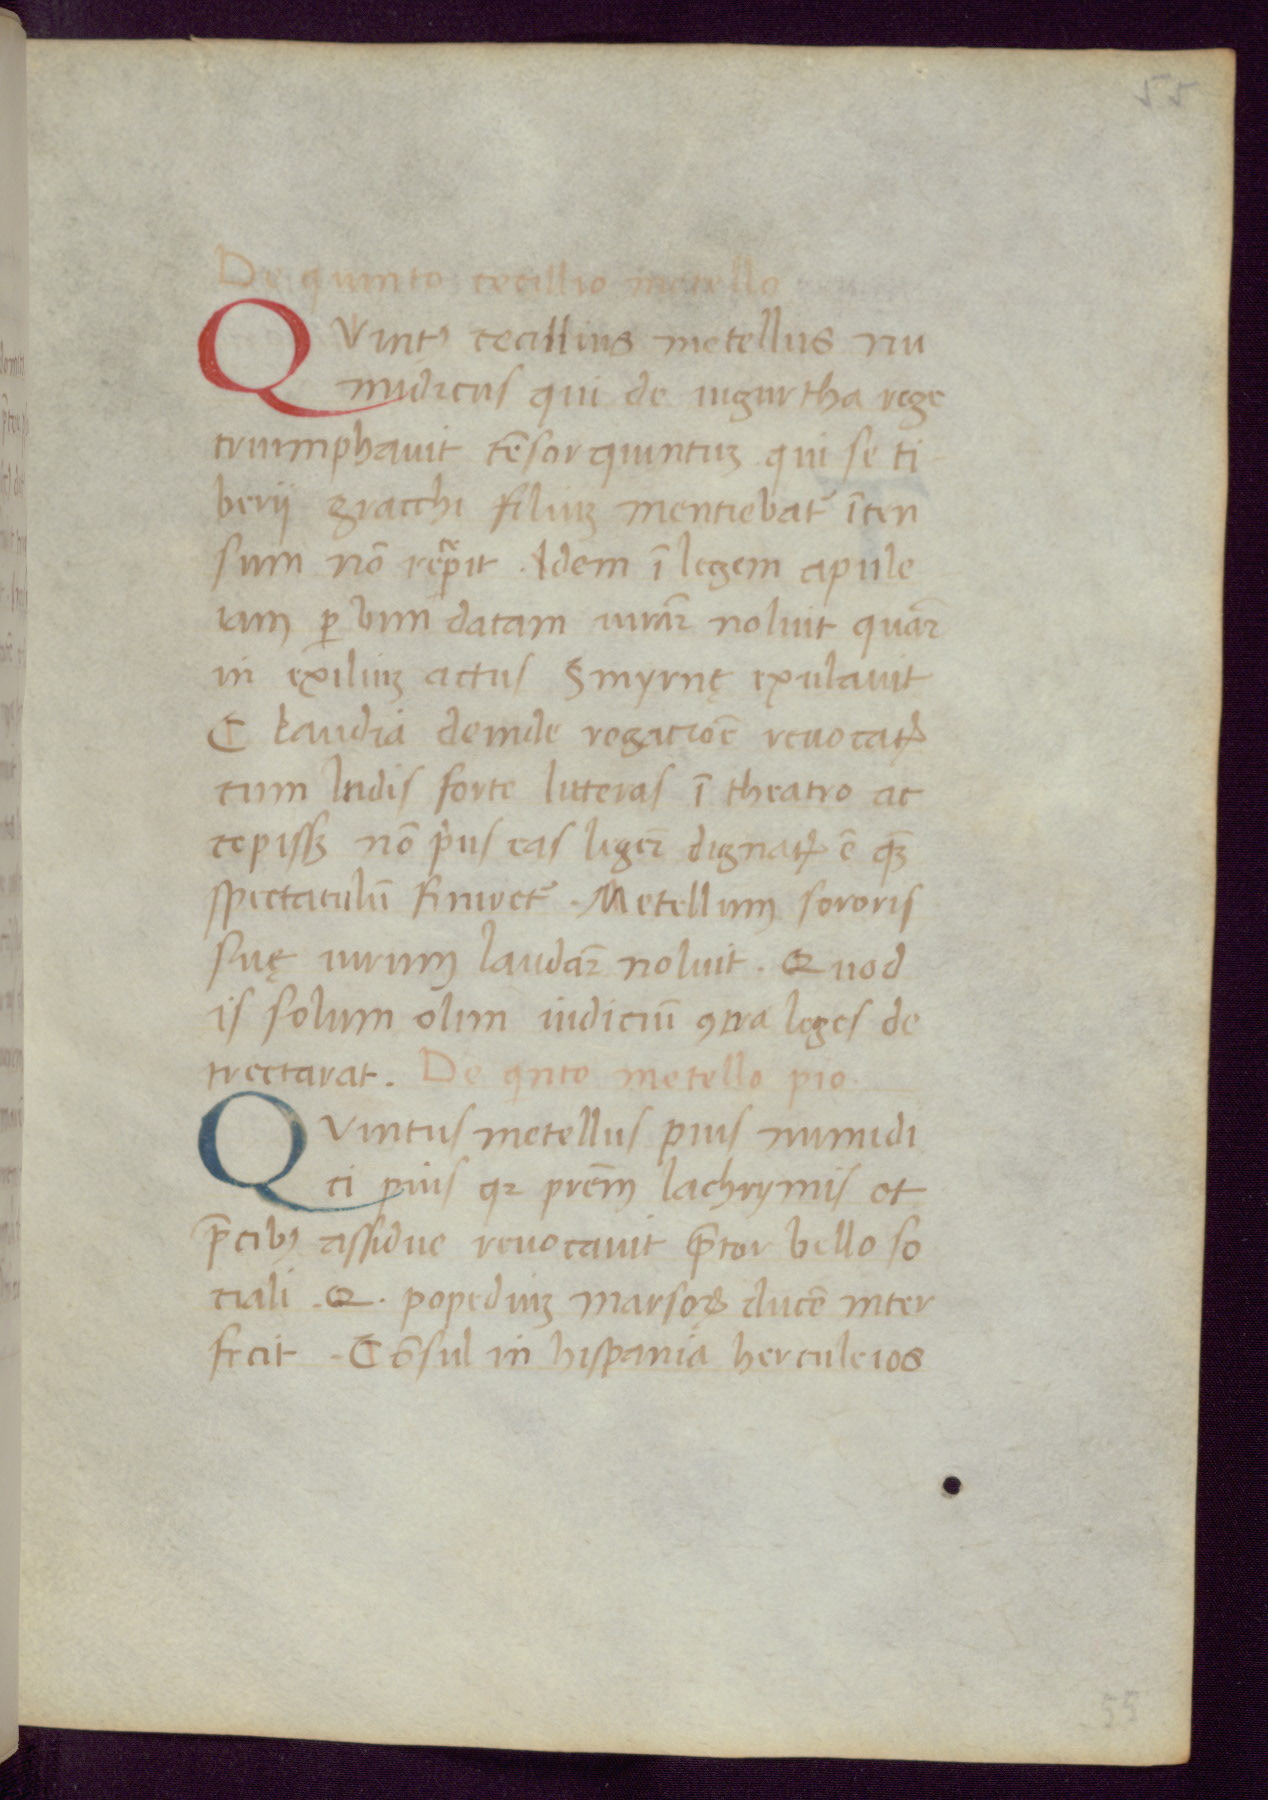 55
De quinto cecillio metello
QVintꝰ cecillius metellus nu
midicus qui de iugurtha rege
triumphauit cẽsor quintuꝫ qui se ti
berij gracchi filiuꝫ mentiebat᷑ ĩ cen
sum nõ rep̃it. Idem ĩ legem apule
iam ꝑ vim datam iurar̃ noluit quar̃
in exiliuꝫ actus Smyrnę exulauit
Claudia deinde rogatiõe reuocatꝰ
cum ludis forte litteras ĩ theatro ac
cepissꝫ nõ pͥus eas leger̃ dignatꝰ ẽ qꝫ̃
spectaculũ finiret᷑. Metellum sororis
suę uirum laudar̃ noluit. Quod
is solum olim iudiciũ ꝯtra leges de
trectarat. De qnto metello pio
QVintus metellus pius numidi
ci pius qꝛ pr̃em lachrymis et
p̃cibꝰ assidue reuocauit p̃tor bello so
ciali. Q. popediuꝫ marsoꝝ ducẽ inter
fecit. Cõsul in hispania herculeios
55